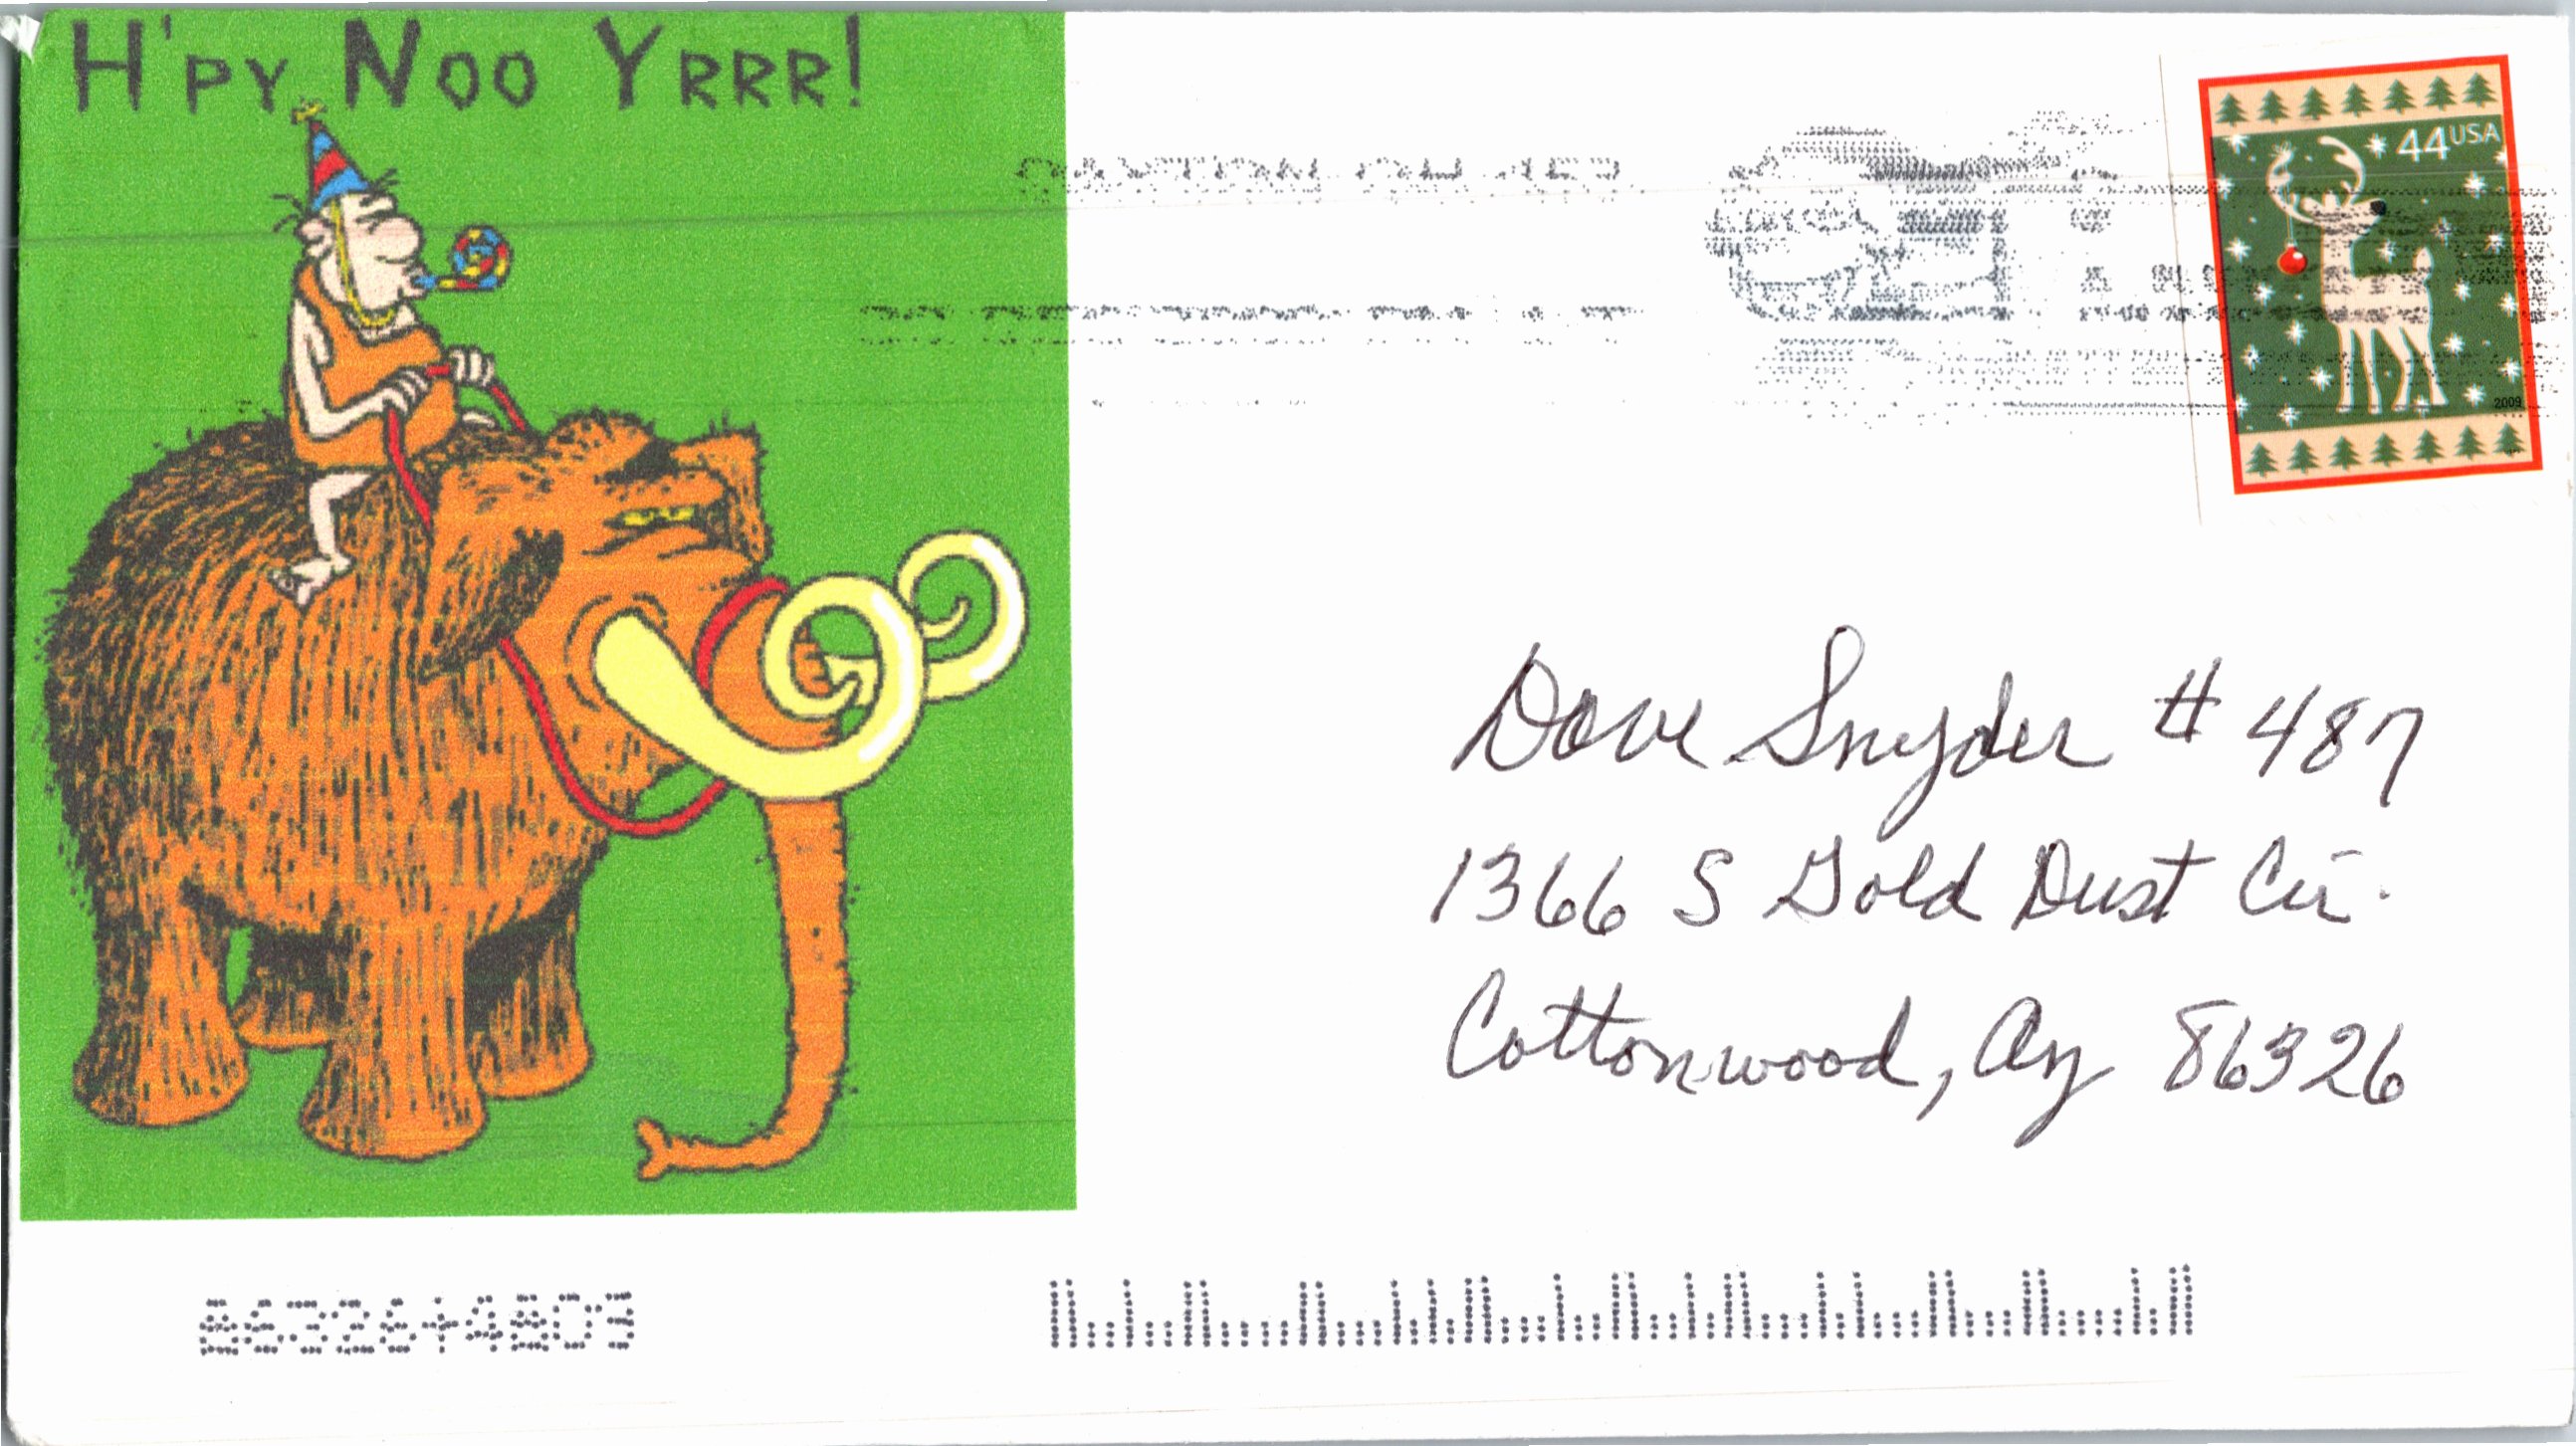 H'PY NOO YRRR!
DAYTON OH 457
44 USA
2009
Dave Snyder # 487
1366 S Gold Dust Cir.
Cottonwood, Az 86326
8632649803